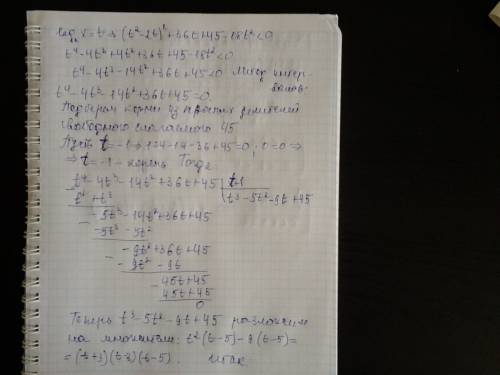 x = t ⇒ (t² - 2t)² + 36t + 45 - 18t² < 0
t⁴ - 4t³ + 4t² + 36t + 45 - 18t² < 0
t⁴ - 4t³ - 14t² + 36t + 45 < 0 Метод интер-
валов.
t⁴ - 4t³ - 14t² + 36t + 45 = 0
Подберем корни из делителей
свободного слагаемого 45
Пусть t = -1 ⇒ 1+4-14-36+45=0; 0=0 ⇒
⇒ t = -1 - корень. Тогда
t⁴ - 4t³ - 14t² + 36t + 45 | t+1
t⁴ + t³ | t³ - 5t² - 9t + 45
- 5t³ - 14t² + 36t + 45
- 5t³ - 5t²
- 9t² + 36t + 45
- 9t² - 9t
45t + 45
45t + 45
0
Теперь t³ - 5t² - 9t + 45 разложим
на множители: t²(t-5) - 9(t-5) =
= (t+3)(t-3)(t-5). Итак